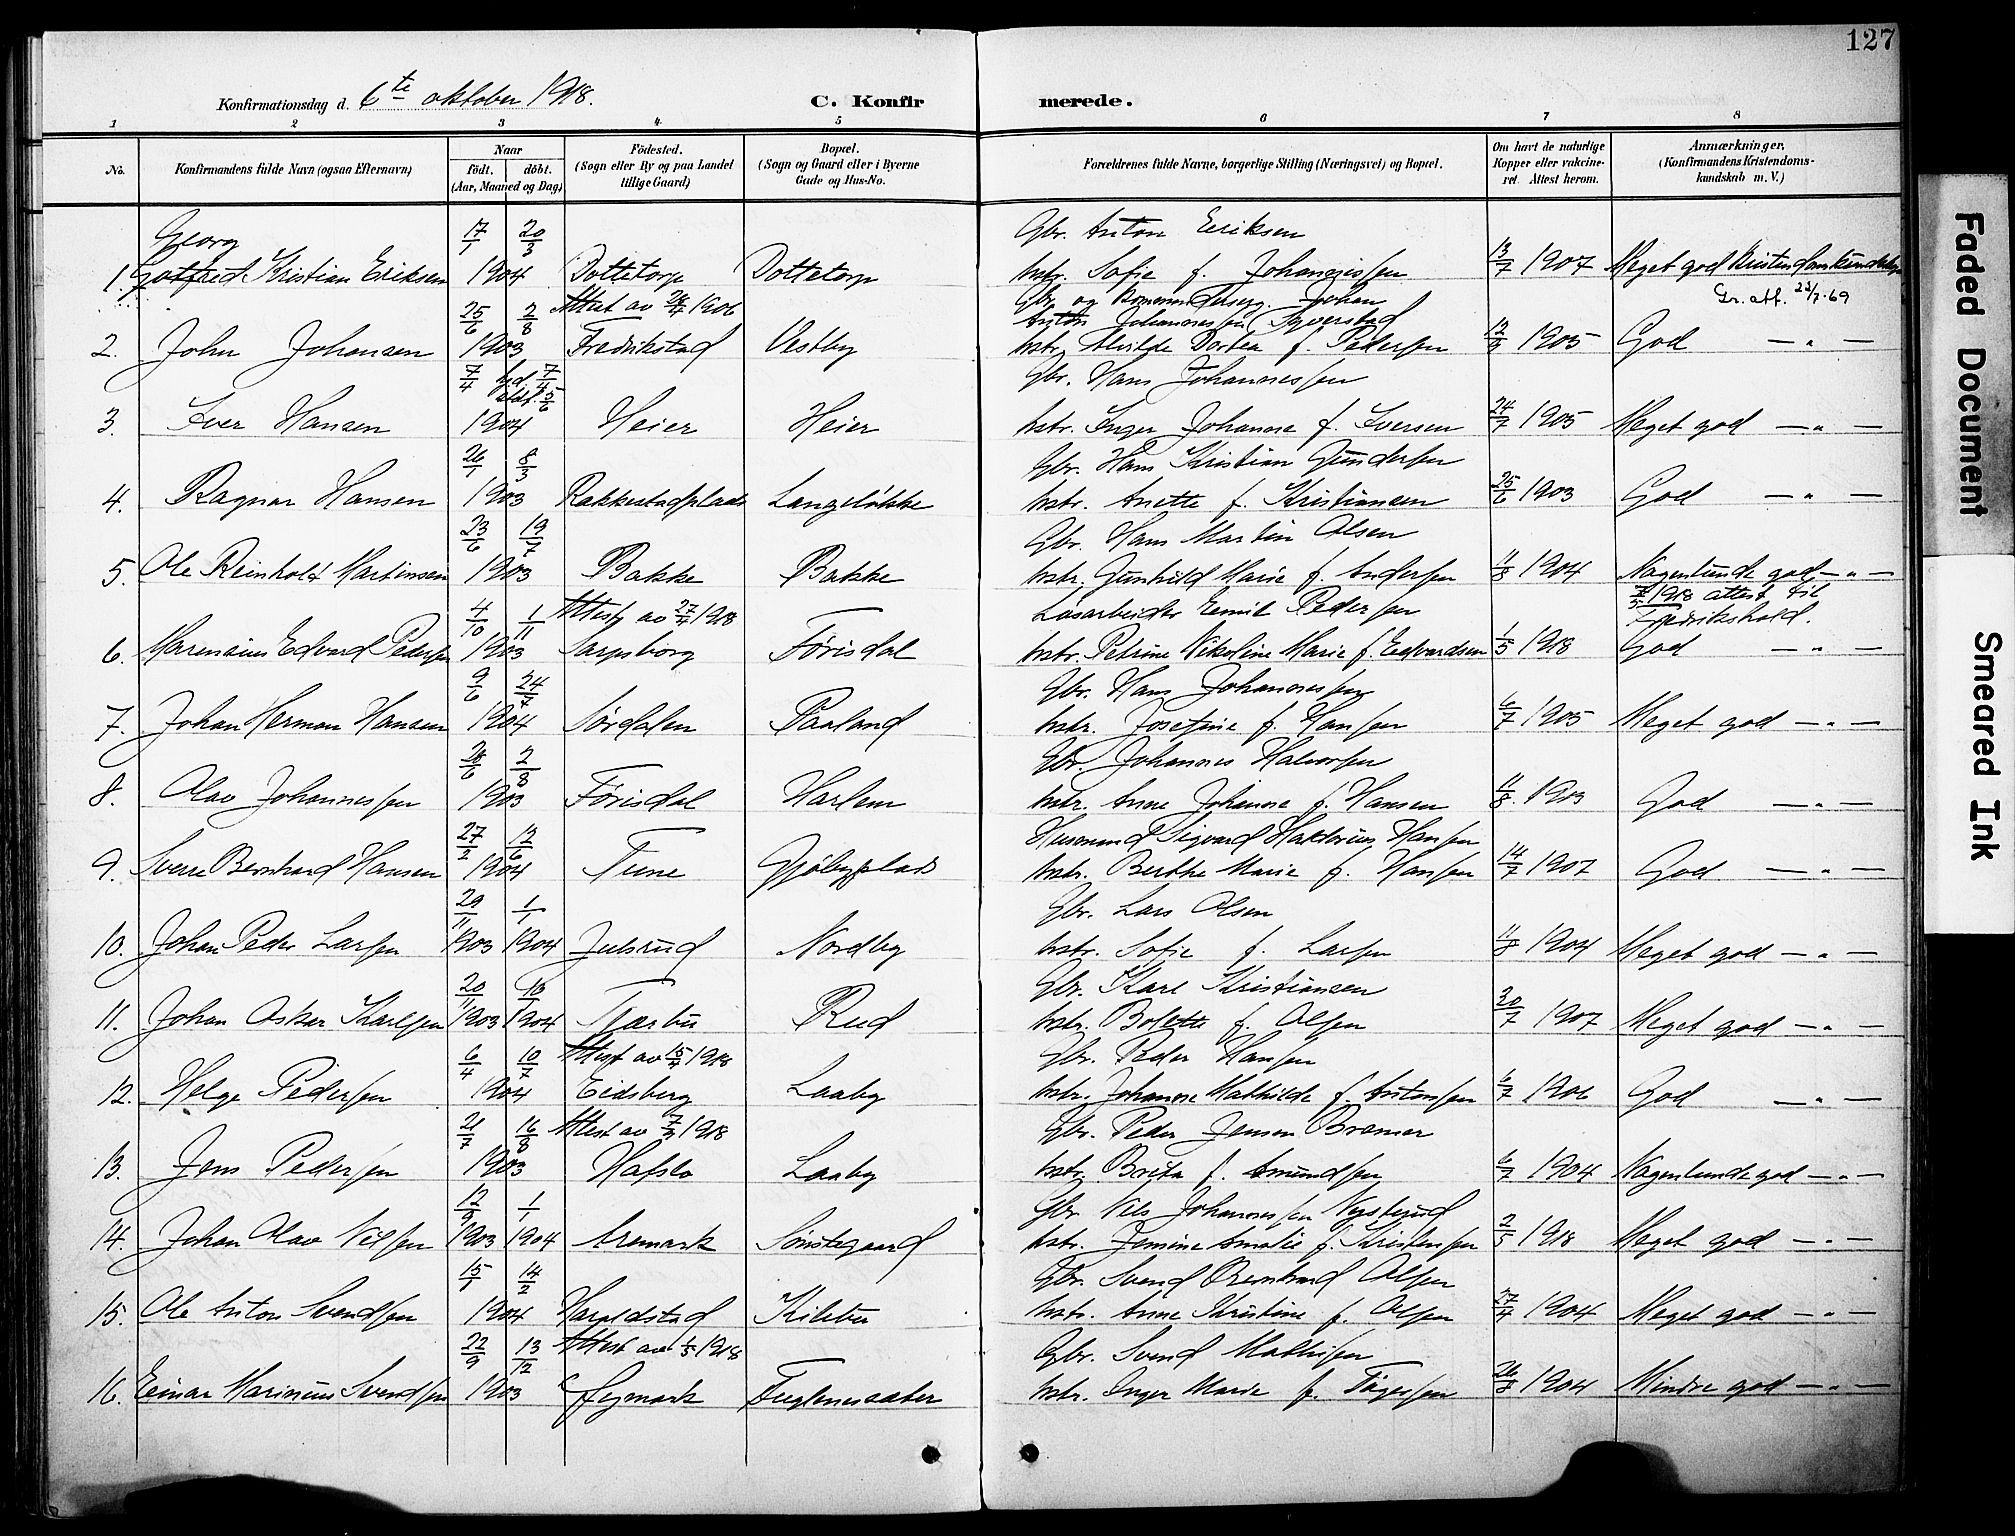 127
Konfirmationsdag d. 6te oktober 1918.
C. Konfirmerede.
1 2 3 4 5 6 7 8
No.
Konfirmandens fulde Navn (ogsaa Efternavn)
Naar
født. døbt.
(Aar, Maaned og Dag)
Fødested.
(Sogn eller By og paa Landet
tillige Gaard)
Bopæl.
(Sogn og Gaard eller i Byerne
Gade og Hus-No.
Forældrenes fulde Navne, borgerlige Stilling (Næringsvei) og Bopæl.
Om havt de naturlige
Kopper eller vakcineret.
Attest herom.
Anmærkninger.
(Konfirmandens Kristendomskundskab
m. V.)
Georg 17/1 20/3 Gbr. Anton Eriksen
1. Gotfred Kristian Eriksen 1904 Dottetorp Dottetorp hstr. Sofie f. Johannissen 13/7 1907 Meget god Kristendomskundskap
25/6 2/8 Attest av 24/4 1906 Gbr. og Johan Gr. att. 23/7-69
Anton Johannessen Syverstad
2. John Johansen 1903 Fredrikstad Vestby hstr. Alvilde Dortea f. Pedersen 12/9 1905 God — „ —
7/4 hjd. 7/4 stdf. 5/6 Gbr. Hans Johannessen
3. Iver Hansen 1904 Heier Heier hstr. Inger Johanne f. Iversen 24/7 1905 Meget god — „ —
26/1 8/3 Gbr. Hans Kristian Gundersen
4. Ragnar Hansen 1903 Rakkestadplads Langeløkke hstr. Anette f. Kristiansen 25/6 1903 God — „ —
23/6 19/7 Gbr. Hans Martin Olsen
5. Ole Reinholt Martinsen 1903 Bakke Bakke hstr. Gunhild Marie f. Andersen 11/8 1904 Nogenlunde god — „ —
4/10 1/11 Attest av 27/4 1918 Løsarbeider Emil Pedersen 7/5 1918 attest til
Fredrikshald.
6. Marensius Edvard Pedersen 1903 Sarpsborg Førisdal hstr. Petrine Nikoline Marie f. Edvardsen 1/5 1918 God — „ —
9/6 24/7 Gbr. Hans Johannessen
7. Johan Herman Hansen 1904 Sørdalen Paaland hstr. Josefine f. Hansen 6/7 1905 Meget god — „ —
28/6 2/8 Gbr. Johannes Halvorsen
8. Olav Johannessen 1903 Førisdal Harlem hstr. Anne Johanne f. Hansen 11/8 1903 God — „ —
27/2 12/6 Husmand Sigvard Hansen
9. Sverre Bernhard Hansen 1904 Tune Gjølbyplads hstr. Berthe Marie f. Hansen 14/7 1907 God — „ —
29/11 1/1 Gbr. Lars Olsen
10. Johan Peder Larsen 1903 1904 Julsrud Nordby hstr. Sofie f. Larsen 11/8 1904 Meget god — „ —
20/11 10/1 Gbr. Karl Kristiansen
11. Johan Oskar Karlsen 1903 1904 Tjærbu Rud hstr. Bolette f. Olsen 30/7 1907 Meget god — „ —
6/4 10/7 Attest av 15/4 1918 Gbr. Peder Hansen
12. Helge Pedersen 1904 Eidsberg Laaby hstr. Johanne Mathilde f. Antonsen 6/7 1906 God — „ —
21/7 16/8 Attest av 7/3 1918 Gbr. Peder Jensen Bremer
13. Jens Pedersen 1903 Hafslo Laaby hstr. Brita f. Amundsen 6/7 1904 Nogenlunde god — „ —
12/9 1/1 Gbr. Nils Johannessen
14. Johan Olav Nilsen 1903 1904 Aremark Sønstegaard hstr. Jensine Amalie f. Kristensen 2/5 1918 Meget god — „ —
15/1 14/2 Gbr. Svend Bernhard Olsen
15. Ole Anton Svendsen 1904 Haraldstad Kilebu hstr. Anne Kristine f. Olsen 27/4 1904 Meget god — „ —
22/9 13/12 Attest av 1/5 1918 Gbr. Svend Mathisen
16. Einar Marinius Svendsen 1903 Øymark Fuglenesæter hstr. Inger Marie f. Tøgersen 26/8 1904 Mindre god — „ —
Faded Document
Smeared Ink